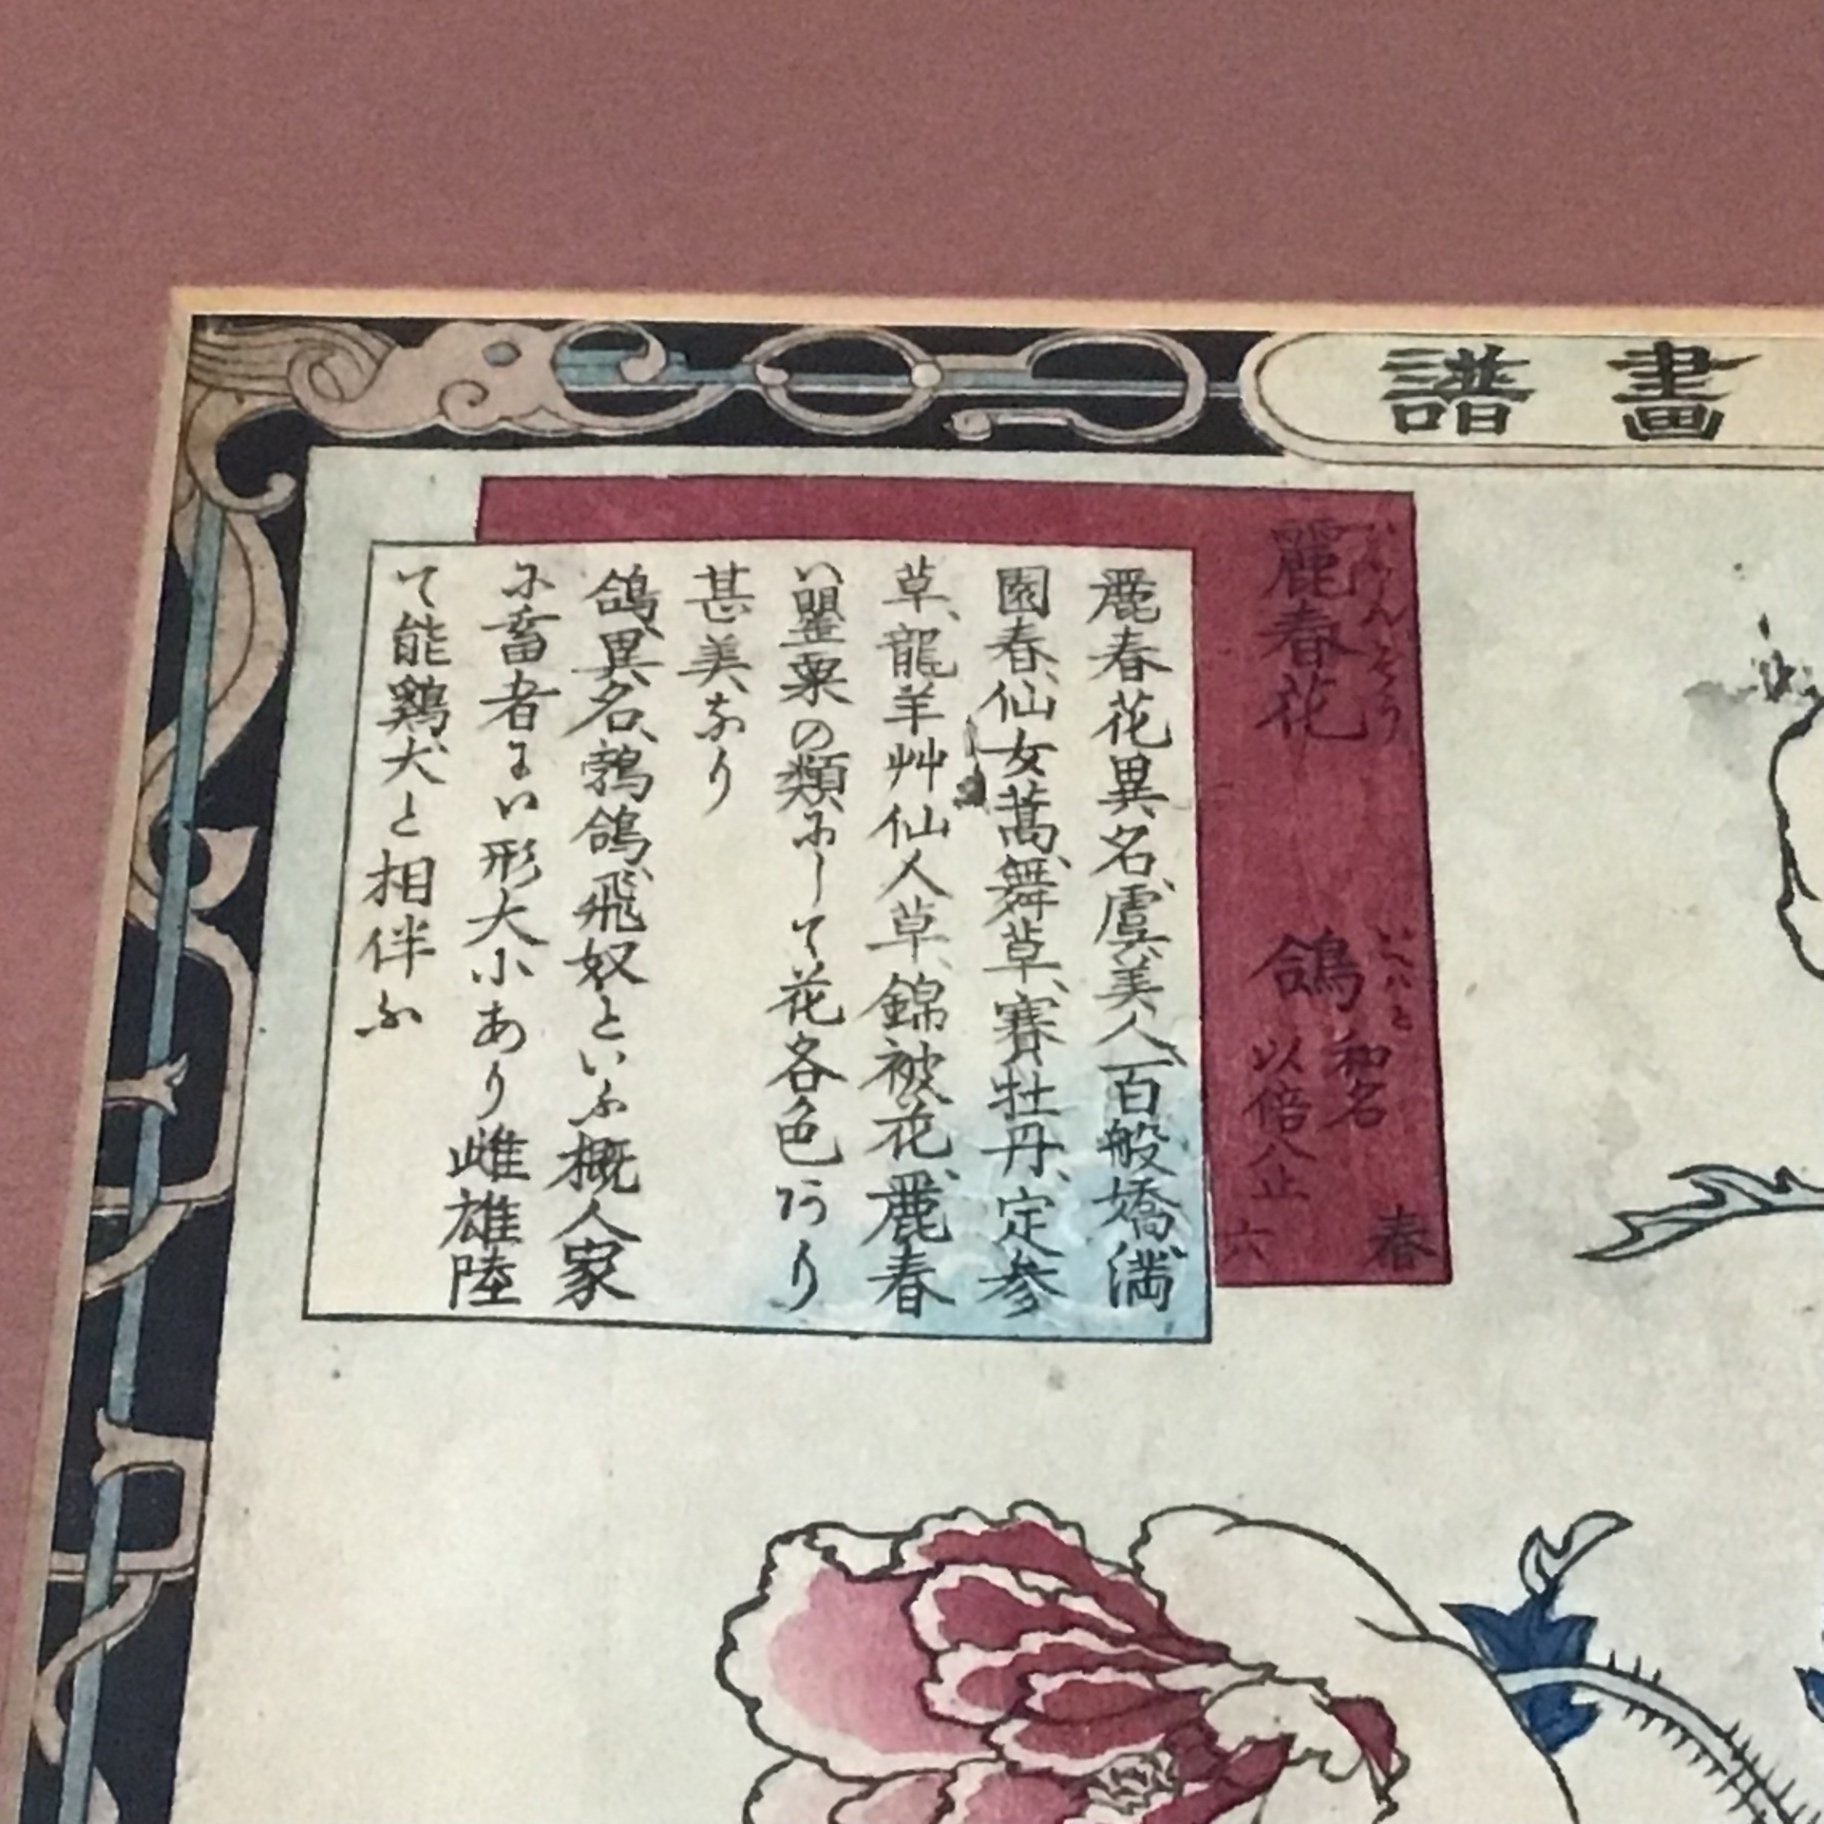 畫譜
麗春花
びじんそう
鴿
いへバと
和名
以倍八止
春
六
麗春花異名、虞美人、百般嬌、満
園春、仙女蒿、舞草、賽牡丹、定参
草、龍羊艸、仙人草、錦被花、麗春
ハ罌粟の類にして花各色アり
甚美なり
鴿、異名、鵓鴿、飛奴といふ概人家
に畜者にハ形大小あり雌雄陸
て能鶏犬と相伴ふ